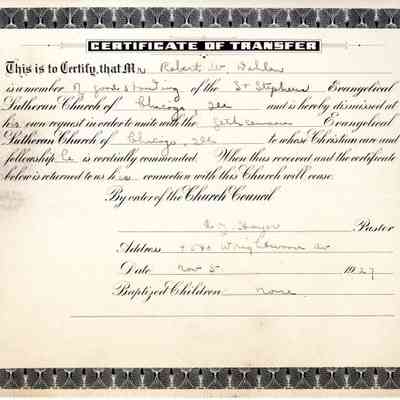 CERTIFICATE OF TRANSFER
This is to Certify, that Mr Robert W.
is a member of good standing of the St Stephens Evangelical
Lutheran Church of Chicago, Ill and is hereby dismissed at
his own request in order to unite with the Gethsemane Evangelical
Lutheran Church of Chicago, Ill to whose Christian care and
fellowship he is cordially commended. When thus received and the certificate
below is returned to us his connection with this Church will cease.
By order of the Church Council
Pastor
Address Wrightwood Av
Date Nov 5 1927
Baptized Children none